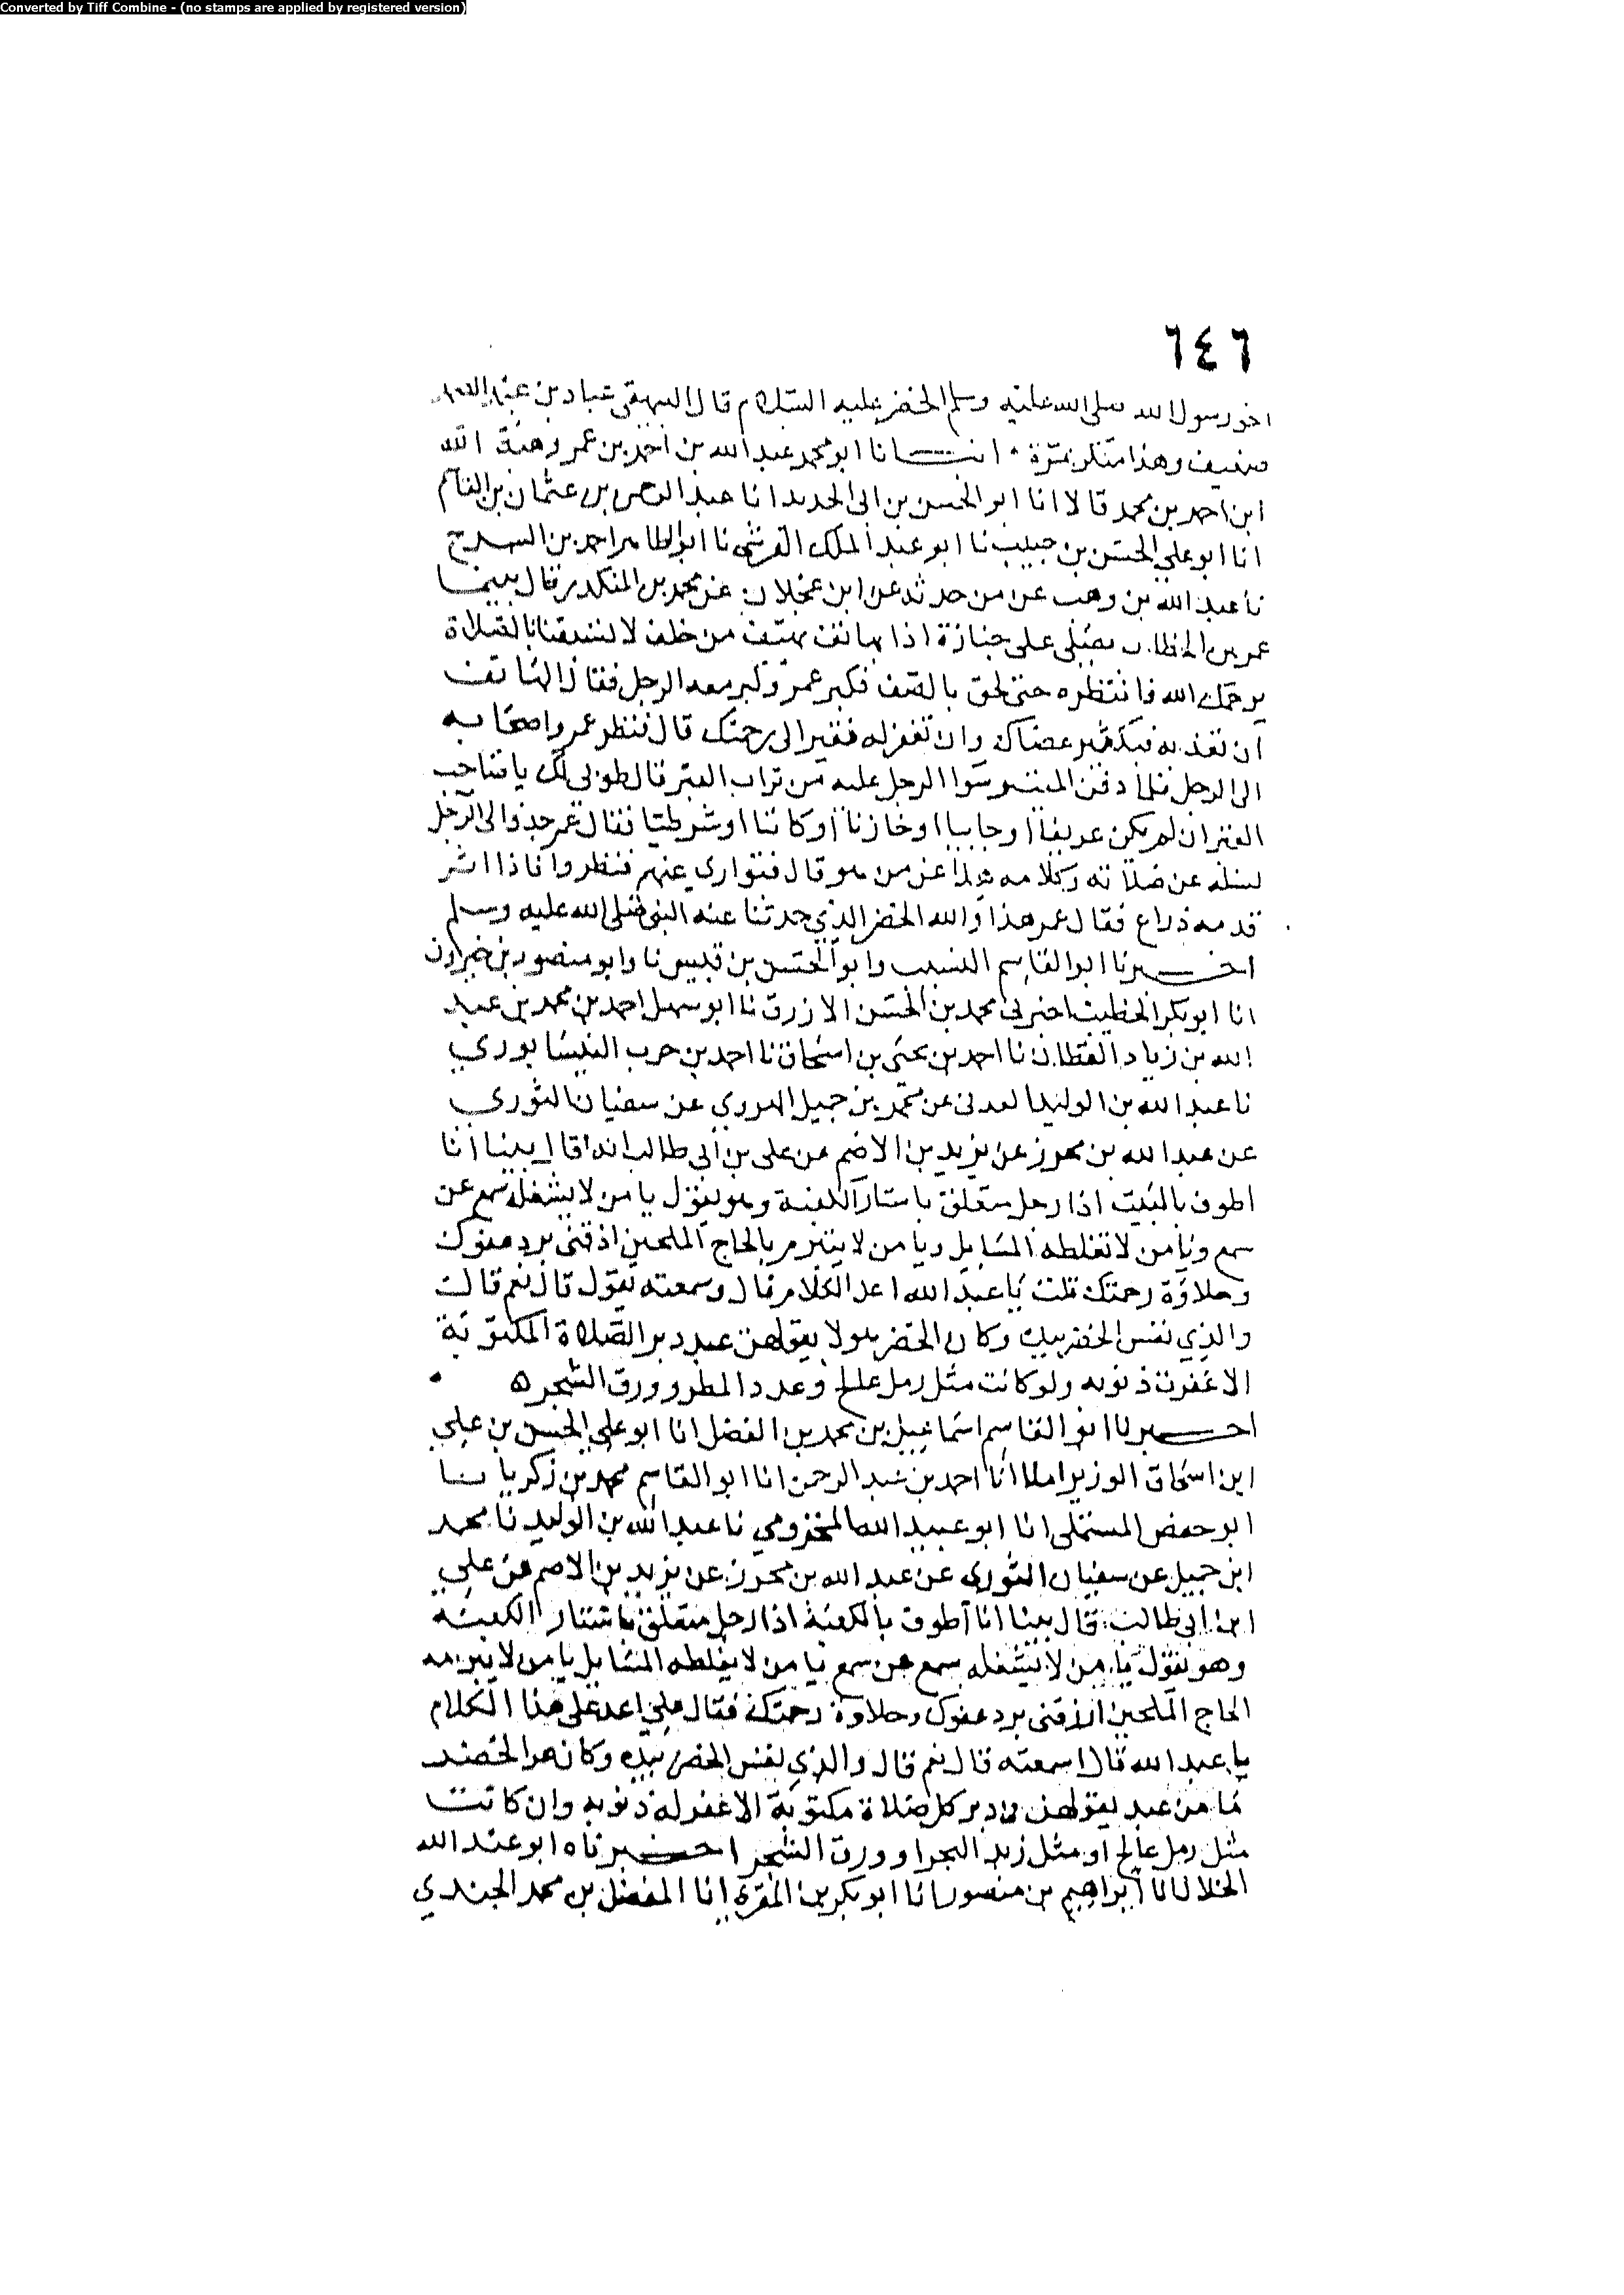 Converted by Tiff Combine - (no stamps are applied by registered version)
٦٤٦
اخو رسول الله صلى الله عليه وسلم الخضر عليه السلام قال البيهقي عباد بن عبد الصمد
ضعيف وهذا منكر بمرة انبـــانا ابو محمد عبد الله بن احمد بن عمر وهبة الله
ابن احمد بن محمد قالا انا ابو الحسن بن ابى الحديد انا عبد الرحمن بن عثمان بن القاسم
انا ابو علي الحسن بن حبيب نا ابو عبد الملك القرشي نا ابو الطاهر احمد بن السرح
نا عبد الله بن وهب عن من حدثه عن ابن عجلان عن محمد بن المنكدر قال بينما
عمر بن الخطاب يصلى على جنازة اذا بهاتف يهتف من خلفه لا تسبقنا بالصلاة
يرحمك الله فانتظره حتى لحق بالصف فكبر عمر وكبر معه الرجل فقال الهاتف
ان تعذبه فبكثير عصاك وان تغفر له ففقير الى رحمتك قال فنظر عمر واصحابه
الى الرجل فلما دفن الميت وسوا الرجل عليه من تراب القبر قال طوبى لك يا صاحب
القبر ان لم يكن عريفا او جابيا او خازنا او كاتبا او شرطيا فقال عمر خذوا الى الرجل
لنسله عن صلاته وكلامه هذا عن من هو قال فتوارى عنهم فنظروا فاذا اثر
قدمه ذراع فقال عمر هذا والله الخضر الذي حدثنا عنه النبى صلى الله عليه وسلم
اخـــبرنا ابو القاسم النسيب وابو الحسن بن قبيس نا وابو منصور بن خيرون
انا ابو بكر الخطيب اخبرنى محمد بن الحسن الازرق نا ابو سهل احمد بن محمد بن عبد
الله بن زياد القطان نا احمد بن يحيى بن اسحاق نا احمد بن حرب النيسابوري
نا عبد الله بن الوليد العدنى عن محمد بن جميل الهروي عن سفيان الثوري
عن عبد الله بن محرز عن يزيد بن الاصم عن على بن ابى طالب انه قال بينا انا
اطوف بالبيت اذا رجل متعلق باستار الكعبة وهو يقول يا من لا يشغله سمع عن
سمع ويا من لا تغلطه المسايل ويا من لا يتبرم بالحاح الملحين اذقنى برد عفوك
وحلاوة رحمتك قلت يا عبد الله اعد الكلام قال وسمعته يقول قال نعم قال
والذي نفس الخضر بيده وكان الخضر هو لا يقولهن عبد دبر الصلاة المكتوبة
الا غفرت ذنوبه ولو كانت مثل رمل عالج وعدد المطر وورق الشجر ه
اخـــبرنا ابو القاسم اسماعيل بن محمد بن الفضل انا ابو على الحسن بن علي
ابن اسحاق الوزير املا انا احمد بن عبد الرحمن انا ابو القاسم محمد بن زكريا نا
ابو حفص المستملى انا ابو عبيد الله المخزومي نا عبد الله بن الوليد نا محمد
ابن جميل عن سفيان الثورى عن عبد الله بن محرز عن يزيد بن الاصم عن علي
ابن ابى طالب قال بينا انا اطوف بالكعبة اذا رجل متعلق باستار الكعبة
وهو يقول يا من لا يشغله سمع عن سمع يا من لا يغلطه المسايل يا من لا يبرمه
الحاح الملحين ارزقنى برد عفوك وحلاوة رحمتك فقال على اعد على هذا الكلام
يا عبد الله قال اسمعته قال نعم قال والذي نفس الخضر بيده وكان هو الخضر
ما من عبد يقولهن فى دبر كل صلاة مكتوبة الا غفر له ذنوبه وان كانت
مثل رمل عالج او مثل زبد البحر او ورق الشجر اخـــبرناه ابو عبد الله
الخلال انا ابراهيم بن منصور انا ابو بكر بن المقرئ انا المفضل بن محمد الجندي